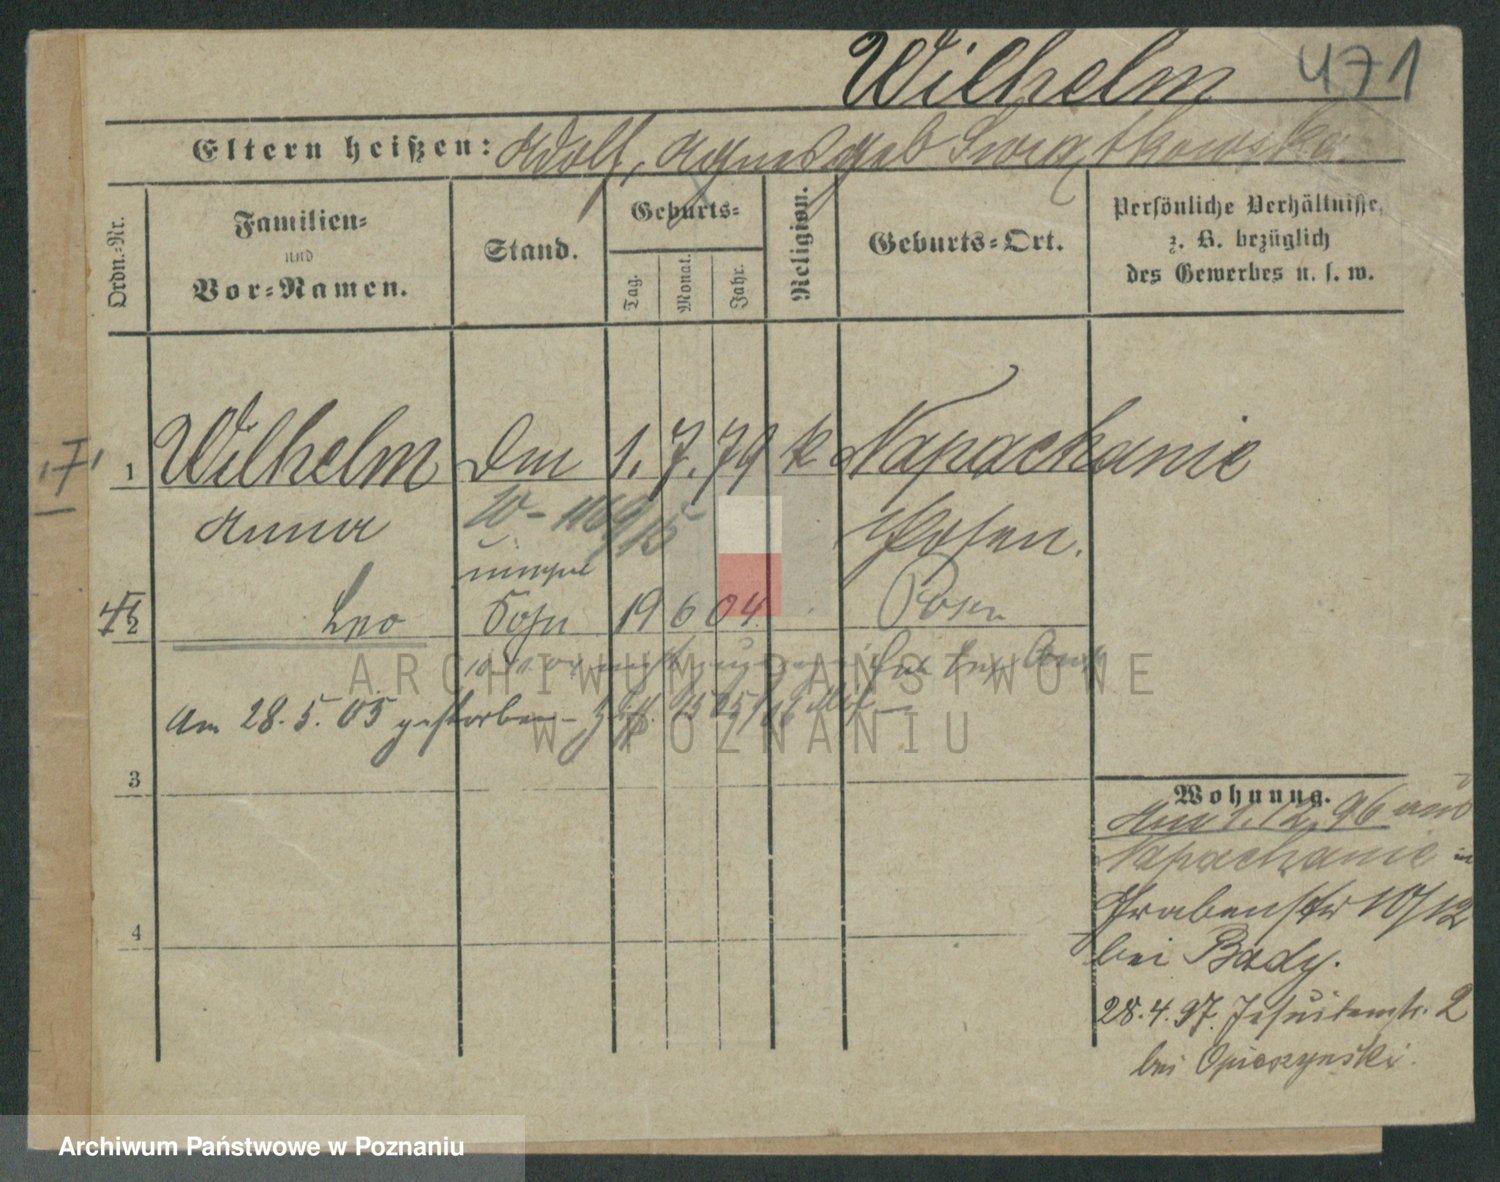 Wilhelm 471
Eltern heißen: Adolf, Agnes geb Swiątkowska
Ordn.-Nr.
Familien-
und
Vor-Namen.
Stand.
Geburts-
Tag. Monat. Jahr.
Religion.
Geburts-Ort.
Persönliche Verhältnisse,
z. B. bezüglich
des Gewerbes u. s. w.
1 Wilhelm 1. 7. 79 k Napachanie
Anna
1169/15
Posen.
unehel
2 Leo Sohn 19 6 04 Posen
Am 28. 5. 05 gestorben
3
4
Wohnung.
Am 1. 12. 96 aus
Napachanie in
Grabenstr 10/12
bei Bady.
28. 4. 97. Jesuitenstr. 2
bei Opieszynski.
ARCHIWUM PAŃSTWOWE
W POZNANIU
Archiwum Państwowe w Poznaniu